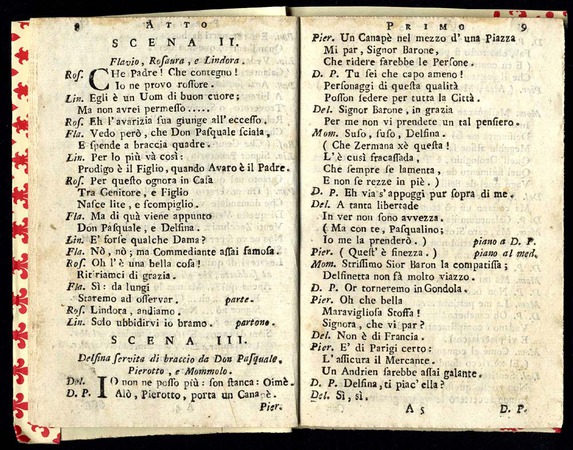 8 ATTO
SCENA II.
Flavio, Rosaura, e Lindora.
Ros. CHe Padre! Che contegno!
Io ne provo rossore.
Lin. Egli è un Uom di buon cuore;
Ma non avrei permesso.....
Ros. Eh l'avarizia sua giunge all'eccesso.
Fla. Vedo però, che Don Pasquale sciala,
E spende a braccia quadre.
Lin. Per lo più và così:
Prodigo è il Figlio, quando Avaro è il Padre.
Ros. Per questo ognora in Casa
Tra Genitore, e Figlio
Nasce lite, e scompiglio.
Fla. Ma di quà viene appunto
Don Pasquale, e Delfina.
Lin. E' forse qualche Dama?
Fla. Nò, nò; ma Commediante assai famosa.
Ros. Oh l'è una bella cosa!
Ritiriamci di grazia.
Fla. Sì: da lungi
Staremo ad osservar. parte.
Ros. Lindora, andiamo.
Lin. Solo ubbidirvi io bramo. partono.
SCENA III.
Delfina servita di braccio da Don Pasquale,
Pierotto, e Mommolo.
Del. IO non ne posso più: son stanca: Oimè.
D. P. Alò, Pierotto, porta un Canapè.
Pier.
PRIMO 9
Pier. Un Canapè nel mezzo d'una Piazza
Mi par, Signor Barone,
Che ridere sarebbe le Persone.
D. P. Tu sei che capo ameno!
Personaggi di questa qualità
Posson seder per tutta la Città.
Del. Signor Barone, in grazia
Per me non vi prendete un tal pensiero.
Mom. Suso, suso, Delfina.
(Che Zermana xè questa!
L'è cusì fracassada,
Che sempre se lamenta,
E non se rezze in piè.)
D. P. Eh via s'appoggi pur sopra di me.
Del. A tanta libertade
In ver non sono avvezza.
(Ma con te, Pasqualino;
Io me la prenderò.) piano a D. P.
Pier. (Quest' è finezza.) piano al med.
Mom. Strissimo Sior Baron la compatissa;
Delfinetta non fà molto viazzo.
D. P. Or torneremo in Gondola.
Pier. Oh che bella
Maravigliosa Stoffa!
Signora, che vi par?
Del. Non è di Francia.
Pier. E' di Parigi certo:
L'assicura il Mercante.
Un Andrien sarebbe assai galante.
D. P. Delfina, ti piac'ella?
Del. Sì, sì.
A5 D. P.